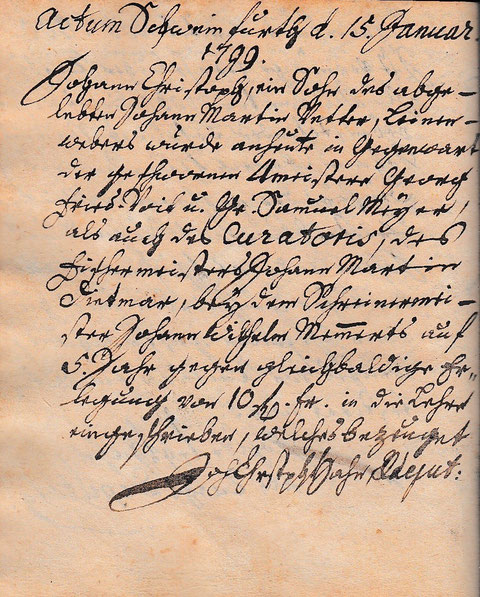 Actum Schweinfurth d. 15. Januar.
1799.
Johann Christoph, ein Sohn des abge-
lebten Johann Martin Vetter, Leinen-
webers wurde anheute in Gegenwart
der geschwornen Meistere Georg
u. Gr. Samuel Meyer,
als auch des Curatoris, des
Fischermeisters Johann Martin
Dietmar, bey dem Schreinermei-
ster Johann Wilhelm Memerts auf
5. Jahr gegen gleichbaldige Er-
legung von 10 fr. in die Lehre
eingeschrieben, welches bezeuget
Joh. Christph Hahn